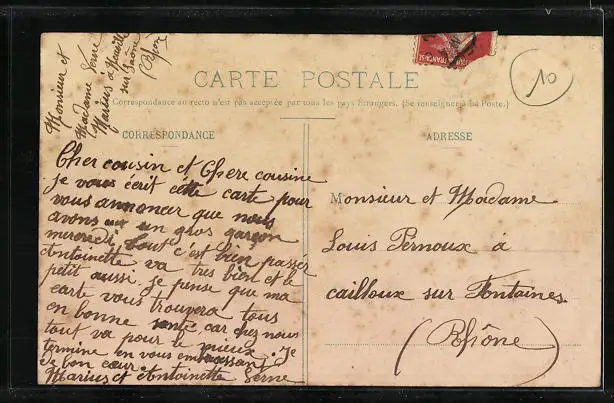 Monsieur et
Madame Serve
Marius à
sur Saône
(Rhône)
CARTE POSTALE
Correspondance au recto n'est pas acceptée par tous les pays Étrangers. (Se renseigner à la Poste.)
CORRESPONDANCE
Cher cousin et Chere cousine
je vous écrit cétte carte pour
vous annoncer que nous
avons un gros garçon
mercredi, tout c'est bien passer
Antoinette va tres bien et le
petit aussi. je pense que ma
carte vous trouvera tous
en bonne santé car chez nous
tout va pour le mieux. Je
termine en vous embrassant
de bon cœur.
Marius et Antoinette Serve
ADRESSE
Monsieur et Madame
Louis Pernoux à
cailloux sur Fontaines
(Rhône)
10